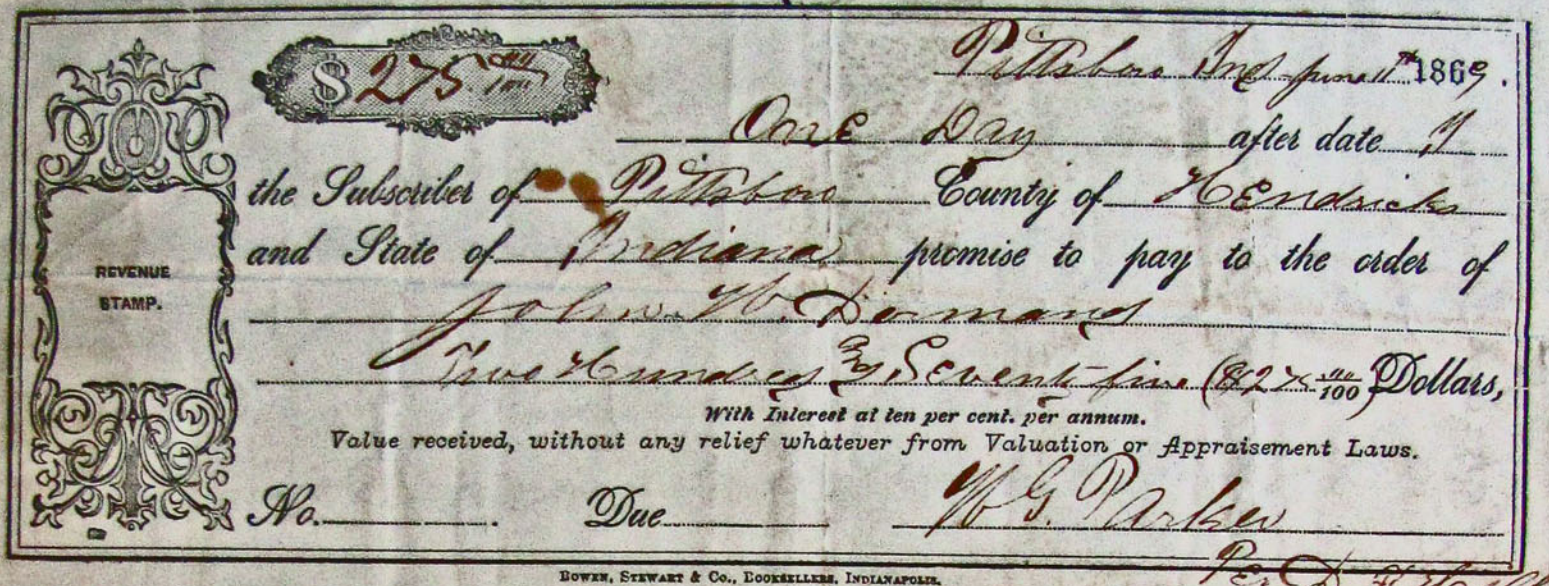 $275.00/100 Pittsboro Ind June 11th 1869.
One Day after date I
the Subscriber of Pittsboro County of Hendricks
and State of Indiana promise to pay to the order of
REVENUE
STAMP.
John W. Dormand
Two Hundred & Seventy-five ($27 00/100) Dollars,
With Interest at ten per cent. per annum.
Value received, without any relief whatever from Valuation or Appraisement Laws.
No. Due W G. Parker
Per D
BOWEN, STEWART & CO., BOOKSELLERS, INDIANAPOLIS.